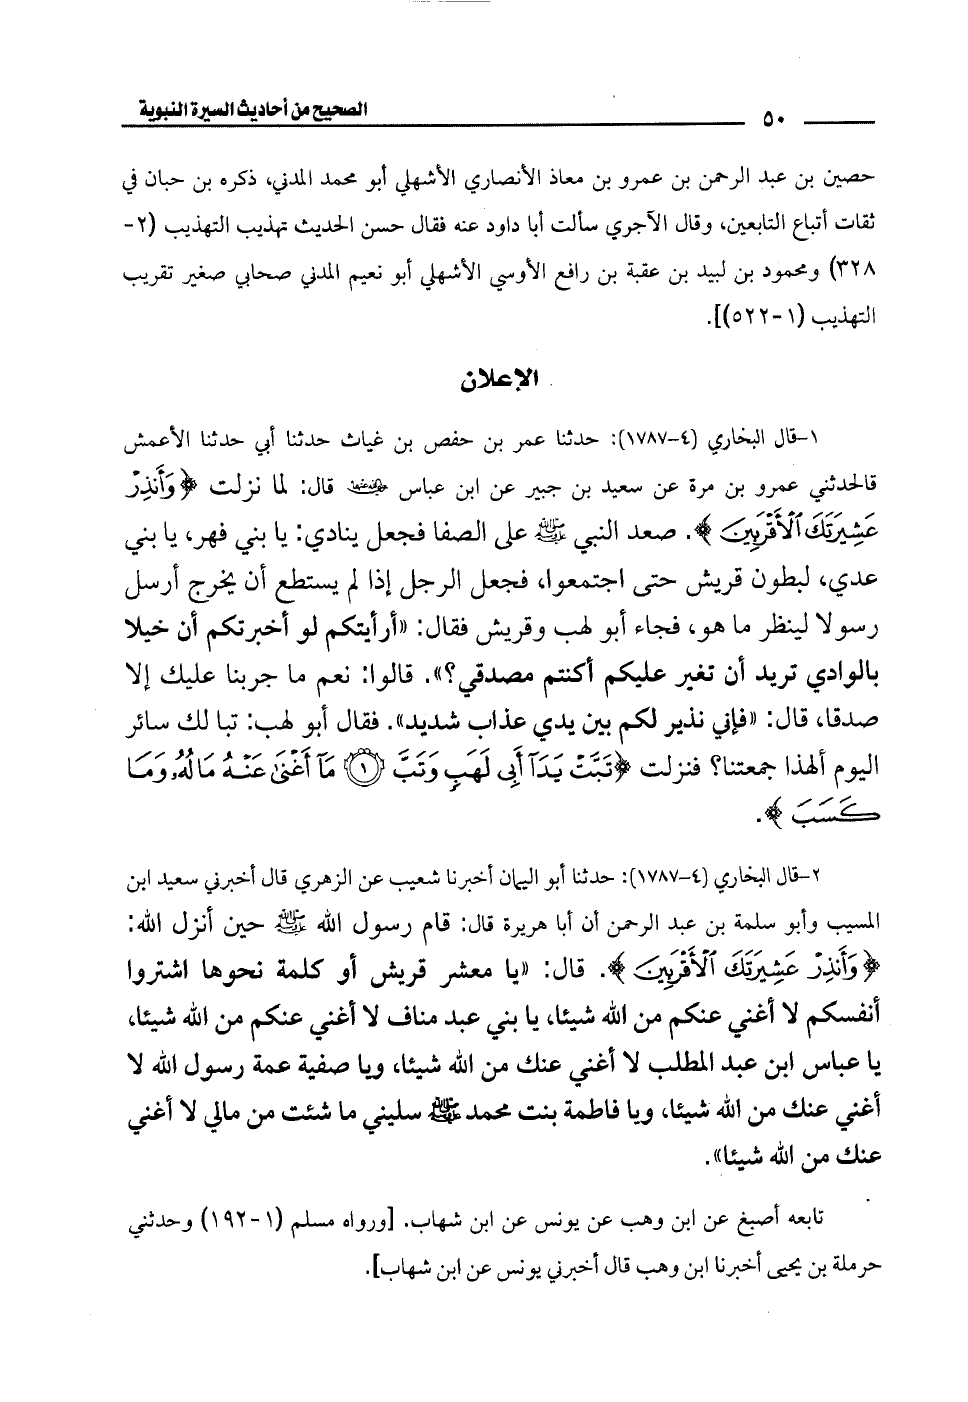 ٥٠
الصحيح من أحاديث السيرة النبوية
حصين بن عبد الرحمن بن عمرو بن معاذ الأنصاري الأشهلي أبو محمد المدني، ذكره بن حبان في
ثقات أتباع التابعين، وقال الآجري سألت أبا داود عنه فقال حسن الحديث تهذيب التهذيب (٢-
٣٢٨) ومحمود بن لبيد بن عقبة بن رافع الأوسي الأشهلي أبو نعيم المدني صحابي صغير تقريب
التهذيب (١-٥٢٢)].
الإعلان
١-قال البخاري (٤-١٧٨٧): حدثنا عمر بن حفص بن غياث حدثنا أبي حدثنا الأعمش
قالحدثني عمرو بن مرة عن سعيد بن جبير عن ابن عباس رضي الله عنهما قال: لما نزلت ﴿وَأَنذِرْ
عَشِيرَتَكَ ٱلْأَقْرَبِينَ﴾. صعد النبي ﷺ على الصفا فجعل ينادي: يا بني فهر، يا بني
عدي، لبطون قريش حتى اجتمعوا، فجعل الرجل إذا لم يستطع أن يخرج أرسل
رسولا لينظر ما هو، فجاء أبو لهب وقريش فقال: «أرأيتكم لو أخبرتكم أن خيلا
بالوادي تريد أن تغير عليكم أكنتم مصدقي؟». قالوا: نعم ما جربنا عليك إلا
صدقا، قال: «فإني نذير لكم بين يدي عذاب شديد». فقال أبو لهب: تبا لك سائر
اليوم ألهذا جمعتنا؟ فنزلت ﴿تَبَّتْ يَدَآ أَبِى لَهَبٍ وَتَبَّ ۝١ مَآ أَغْنَىٰ عَنْهُ مَالُهُۥ وَمَا
كَسَبَ﴾.
٢-قال البخاري (٤-١٧٨٧): حدثنا أبو اليمان أخبرنا شعيب عن الزهري قال أخبرني سعيد ابن
المسيب وأبو سلمة بن عبد الرحمن أن أبا هريرة قال: قام رسول الله ﷺ حين أنزل الله:
﴿وَأَنذِرْ عَشِيرَتَكَ ٱلْأَقْرَبِينَ﴾. قال: «يا معشر قريش أو كلمة نحوها اشتروا
أنفسكم لا أغني عنكم من الله شيئا، يا بني عبد مناف لا أغني عنكم من الله شيئا،
يا عباس ابن عبد المطلب لا أغني عنك من الله شيئا، ويا صفية عمة رسول الله لا
أغني عنك من الله شيئا، ويا فاطمة بنت محمد ﷺ سليني ما شئت من مالي لا أغني
عنك من الله شيئا».
تابعه أصبغ عن ابن وهب عن يونس عن ابن شهاب. [ورواه مسلم (١-١٩٢) وحدثني
حرملة بن يحيى أخبرنا ابن وهب قال أخبرني يونس عن ابن شهاب].